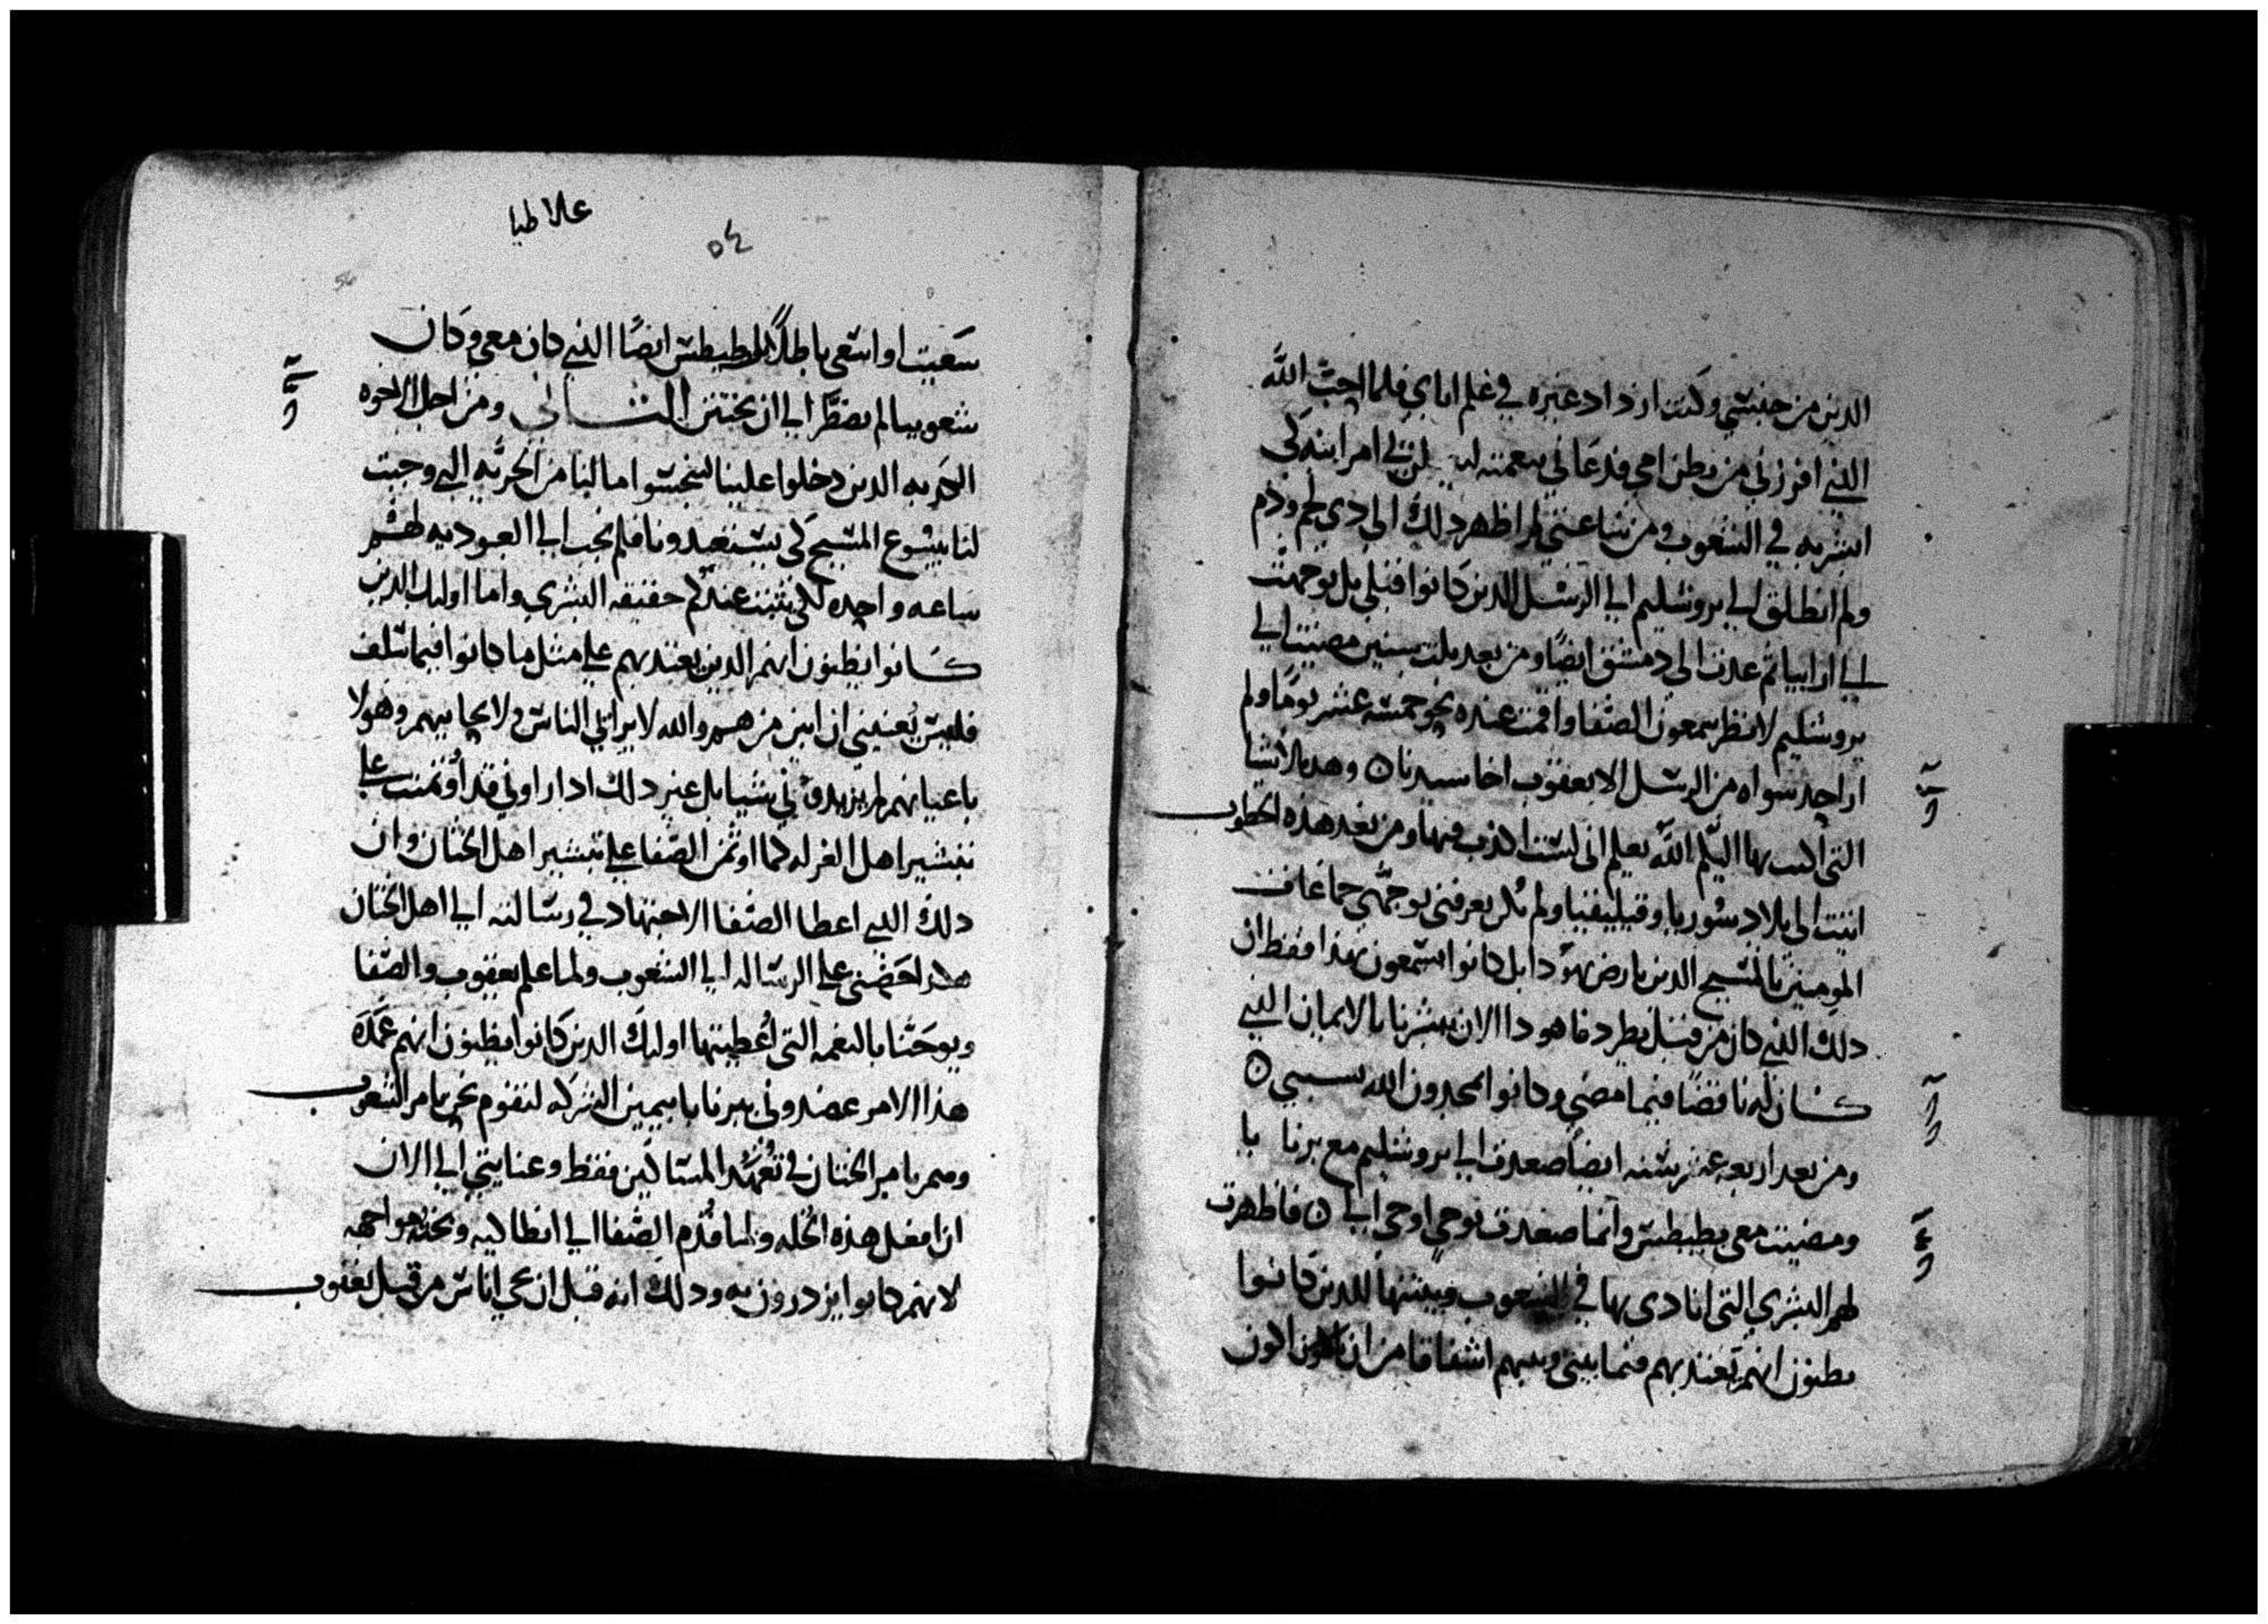 الدين من جنسي وكنت ازداد غيره في علم اباي فلما احب الله
الذي افرزني من بطن امي ودعاني بنعمته لي امر ابنه كي
ابشر به في الشعوب ومن ساعتي لم اظهر ذلك الي ذي لحم ودم
ولم انطلق الي يروشليم الي الرسل الدين كانوا قبلي بل توجهت
الي ارابيا ثم عدت الي دمشق ايضًا ومن بعد ثلث سنين مضيت الي
يروشليم لانظر سمعون الصفا واقمت عنده نحو خمسة عشر يومًا ولم
ار احد سواه من الرسل الا يعقوب اخا سيدنا ٥ وهذه الاشيا
التي اكتب بها اليكم الله يعلم اني لست اكذب فيها ومن بعد هذه الخطوب
اتيت الي بلاد سوريا وقيليقيا ولم تكن يعرفني بوجهي جماعات
المومنين بالمسيح الدين بارض يهودا بل كانوا يسمعون بهذا فقط ان
ذلك الذي كان من قبل يطرد فاهو ذا الان يبشرنا بالايمان الذي
كان له ناقضًا فيما مضي وكانوا يمجدون الله بسببي ٥
ومن بعد اربع عشر سنه ايضًا صعدت الي يروشليم مع برنابا
ومضيت معي بطيطس وانما صعدت بوحي اوحي الي ٥ فاظهرت
لهم البشري التي انادي بها في الشعوب وبينتها للدين كانوا
يظنون انهم يعتد بهم فيما بيني وبينهم اشفاقا من ان اكون
علاطيا
٥٤
54
سعيت او اسعي باطلًا طيطس ايضًا الذي كان معي وكان
شعوبيا لم يضطر الي ان يختتن الثاني ومن اجل الاخوه
الدين دخلوا علينا ليتجسسوا ما لنا من الحريه التي وجبت
لنا بيشوع المسيح كي يستعبدونا فلم نجب الي العبوديه لهم
ساعه واحده لكي تثبت عندكم حقيقه البشري واما اوليك الدين
كانوا يظنون انهم الدين يعتد بهم علي مثل ما كانوا فيما سلف
فليس يعنيني ان ابين من هم والله لا يرايي الناس ولا يحابيهم وهولا
باعيانهم لم يزيدوني شيا بل غير ذلك اذ راوني قد اؤتمنت علي
تبشير اهل الغرله كما اوتمن الصفا علي تبشير اهل الختان وان
ذلك الذي اعطا الصفا الاجتهاد في رسالته الي اهل الختان
هكذا حضني علي الرساله الي الشعوب ولما علم يعقوب والصفا
ويوحنا بالنعمه التي اعطيتها اوليك الدين كانوا يظنون انهم عمده
هذا الامر عضدوني وبرنابا بيمين الشركه لنقوم نحن بامر الشعوب
وهم بامر الختان في تعهد المساكين فقط وعنايتي الي الان
ان افعل هذه الخله ولما قدم الصفا الي انطاكيه وبخته مواجهه
لانهم كانوا يزدرون به وذلك انه قبل ان يجي اناس من قبل يعقوب